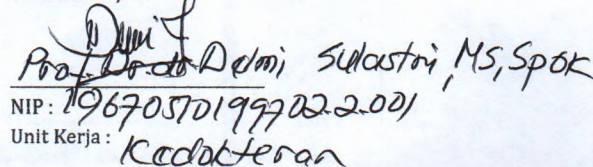 Prof. Dr. dr. Delmi Sulastri, MS, SpGK
NIP : 196705101997022.001
Unit Kerja : Kedokteran